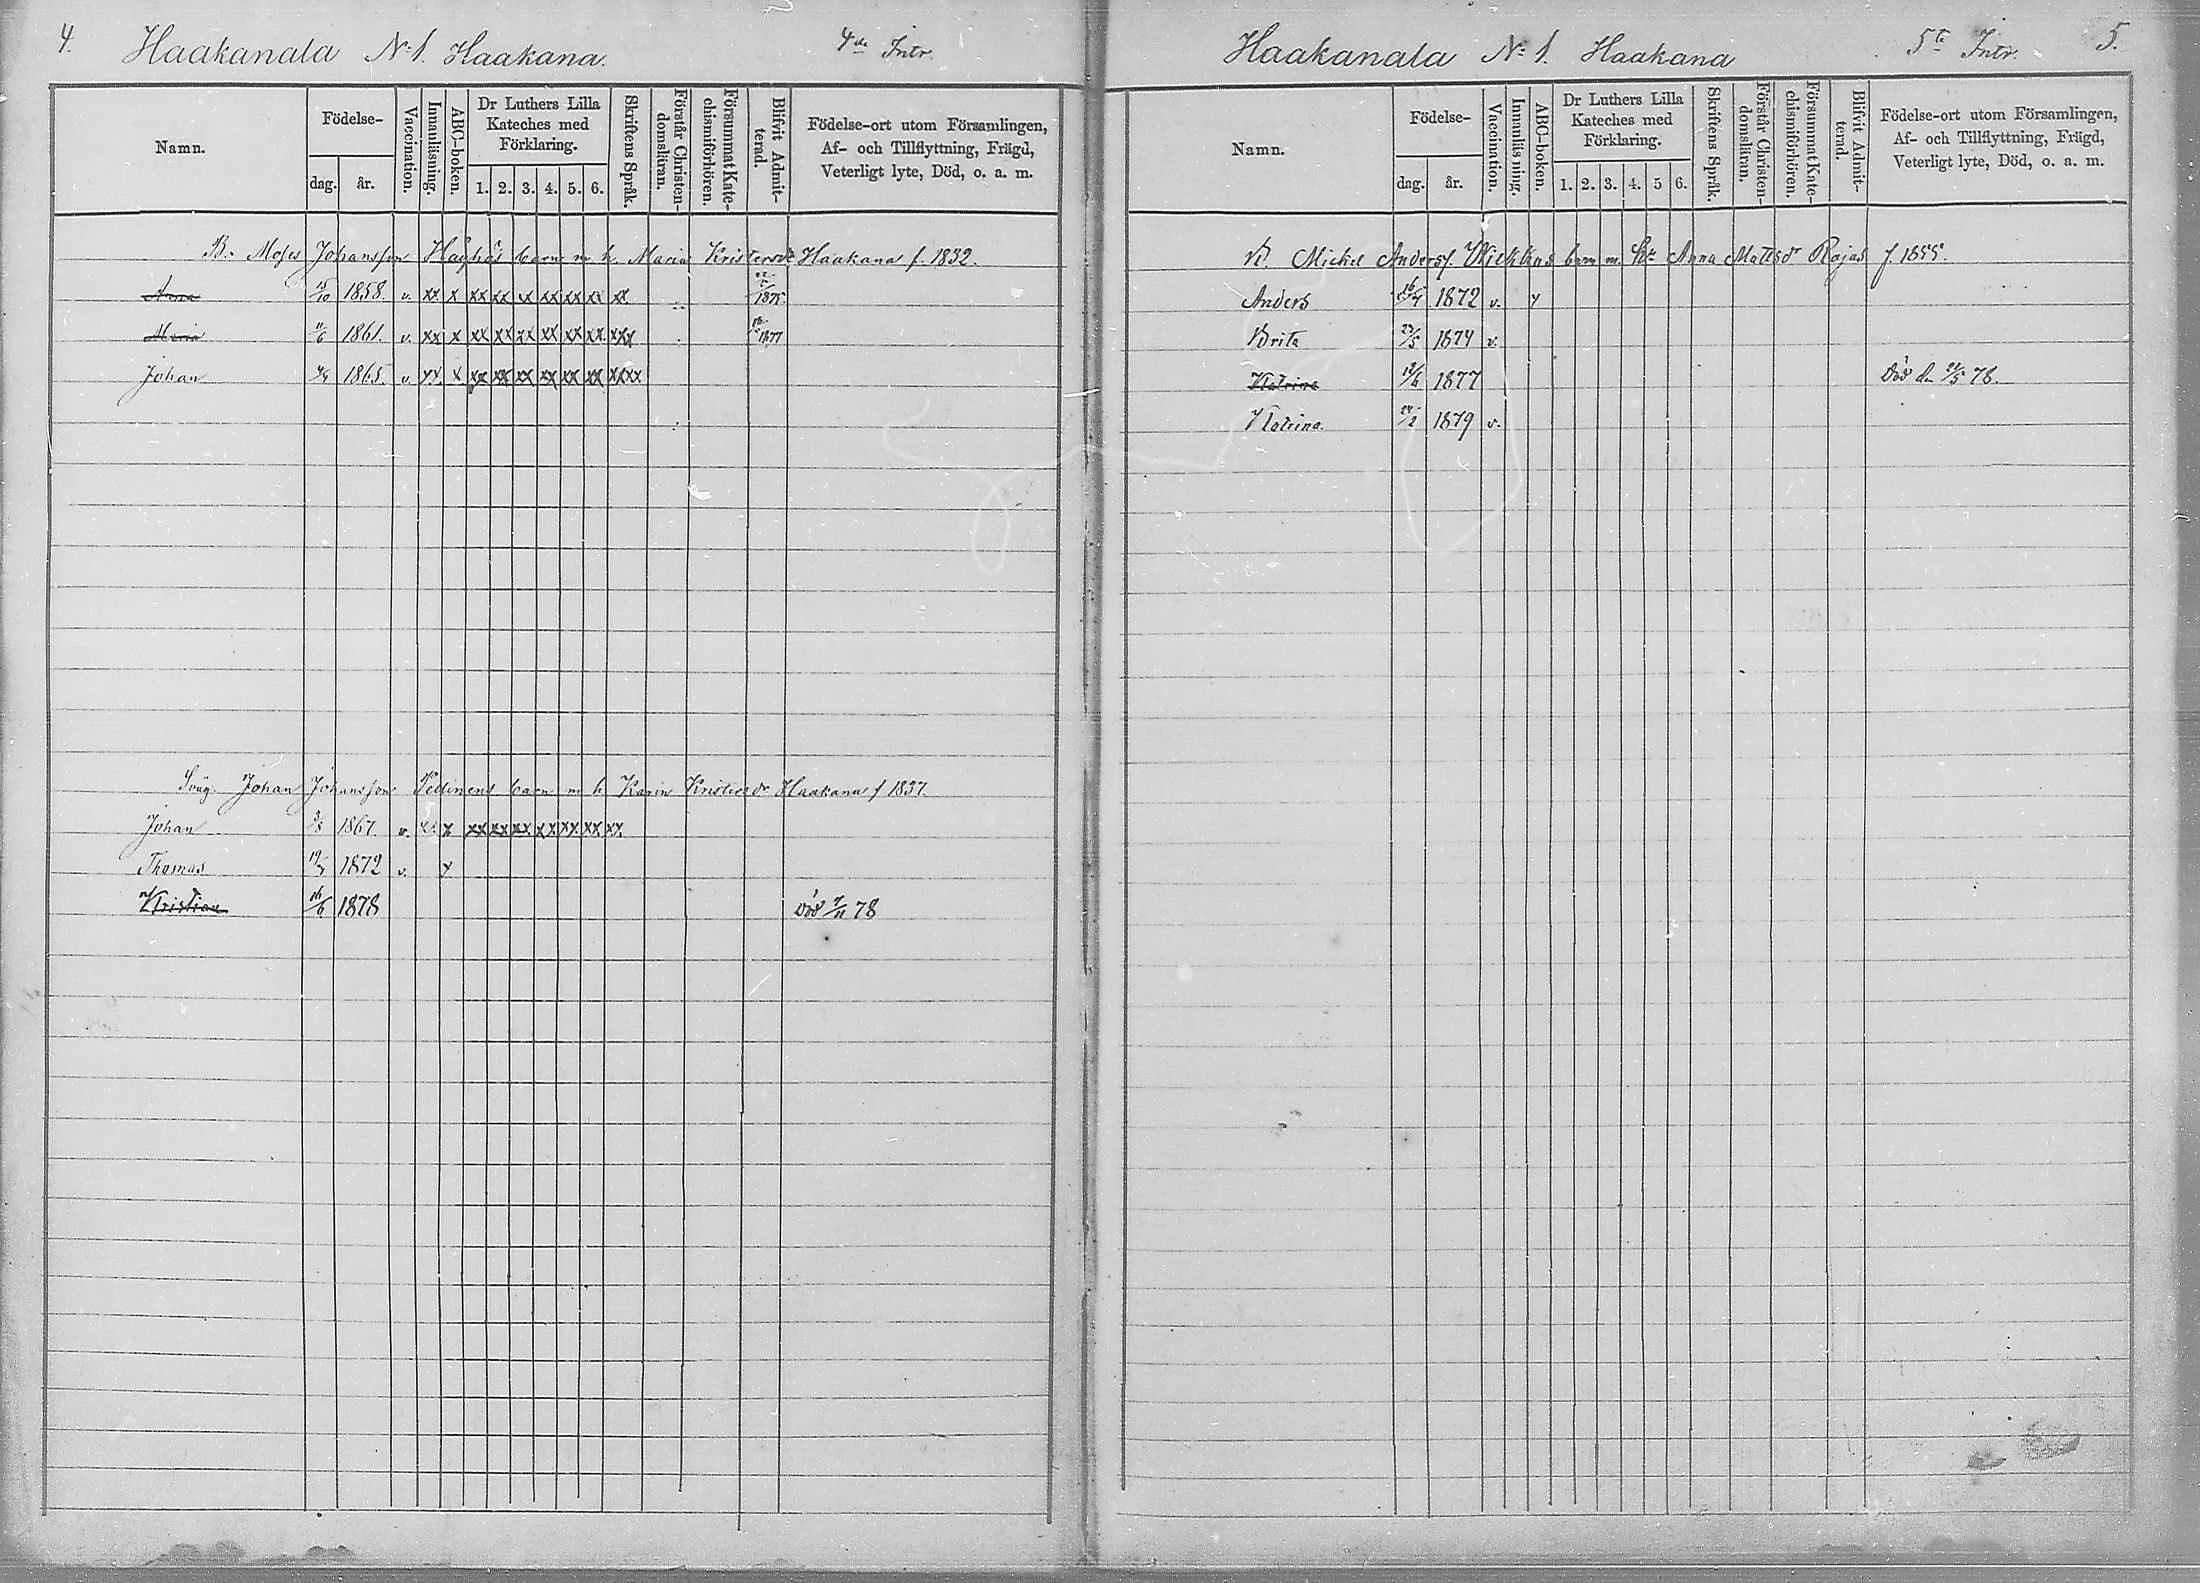 4. Haakanala N:1. Haakana. 4de Intr.
Namn.
Födelse-
dag. år.
Vaccination.
Innanläsning.
ABC-boken.
Dr Luthers Lilla
Kateches med
Förklaring.
1. 2. 3. 4. 5. 6.
Skriftens Språk.
Förstår Christen-
domsläran.
Försummat Kate-
chismiförhören.
Blifvit Admit-
terad.
Födelse-ort utom Församlingen,
Af- och Tillflyttning, Frägd,
Veterligt lyte, Död, o. a. m.
B. Moses Johansson barn m h. Maria Kristersdr Haakana f. 1832.
Anna 1858. v. xx x xx xx xx xx xx xx xx 1875
Maria 11/6 1861. v. xx x xx xx xx xx xx xx xxx 1877
Johan 1865. v. xx x xx xx xx xx xx xx xxxx
Svåg. Johan Johansson Pellinens barn m h Karin Kristersdr Haakana f 1837.
Johan 1867. v. x x xx xx xx xx xx xx xx
Thomas 1872 v. x
Kristian 16/6 1878 död 7/11 78
Haakanala N:1. Haakana 5te Intr. 5.
Namn.
Födelse-
dag. år.
Vaccination.
Innanläsning.
ABC-boken.
Dr Luthers Lilla
Kateches med
Förklaring.
1. 2. 3. 4. 5 6.
Skriftens Språk.
Förstår Christen-
domsläran.
Försummat Kate-
chismiförhören.
Blifvit Admit-
terad.
Födelse-ort utom Församlingen,
Af- och Tillflyttning, Frägd,
Veterligt lyte, Död, o. a. m.
Mickel Andersf. barn m. Anna Mattsdr Rojas f. 1855.
Anders 1872 v. x
Brita 23/5 1874 v.
Katrina 12/6 1877 Död den 78.
Katrina. 24/2 1879 v.